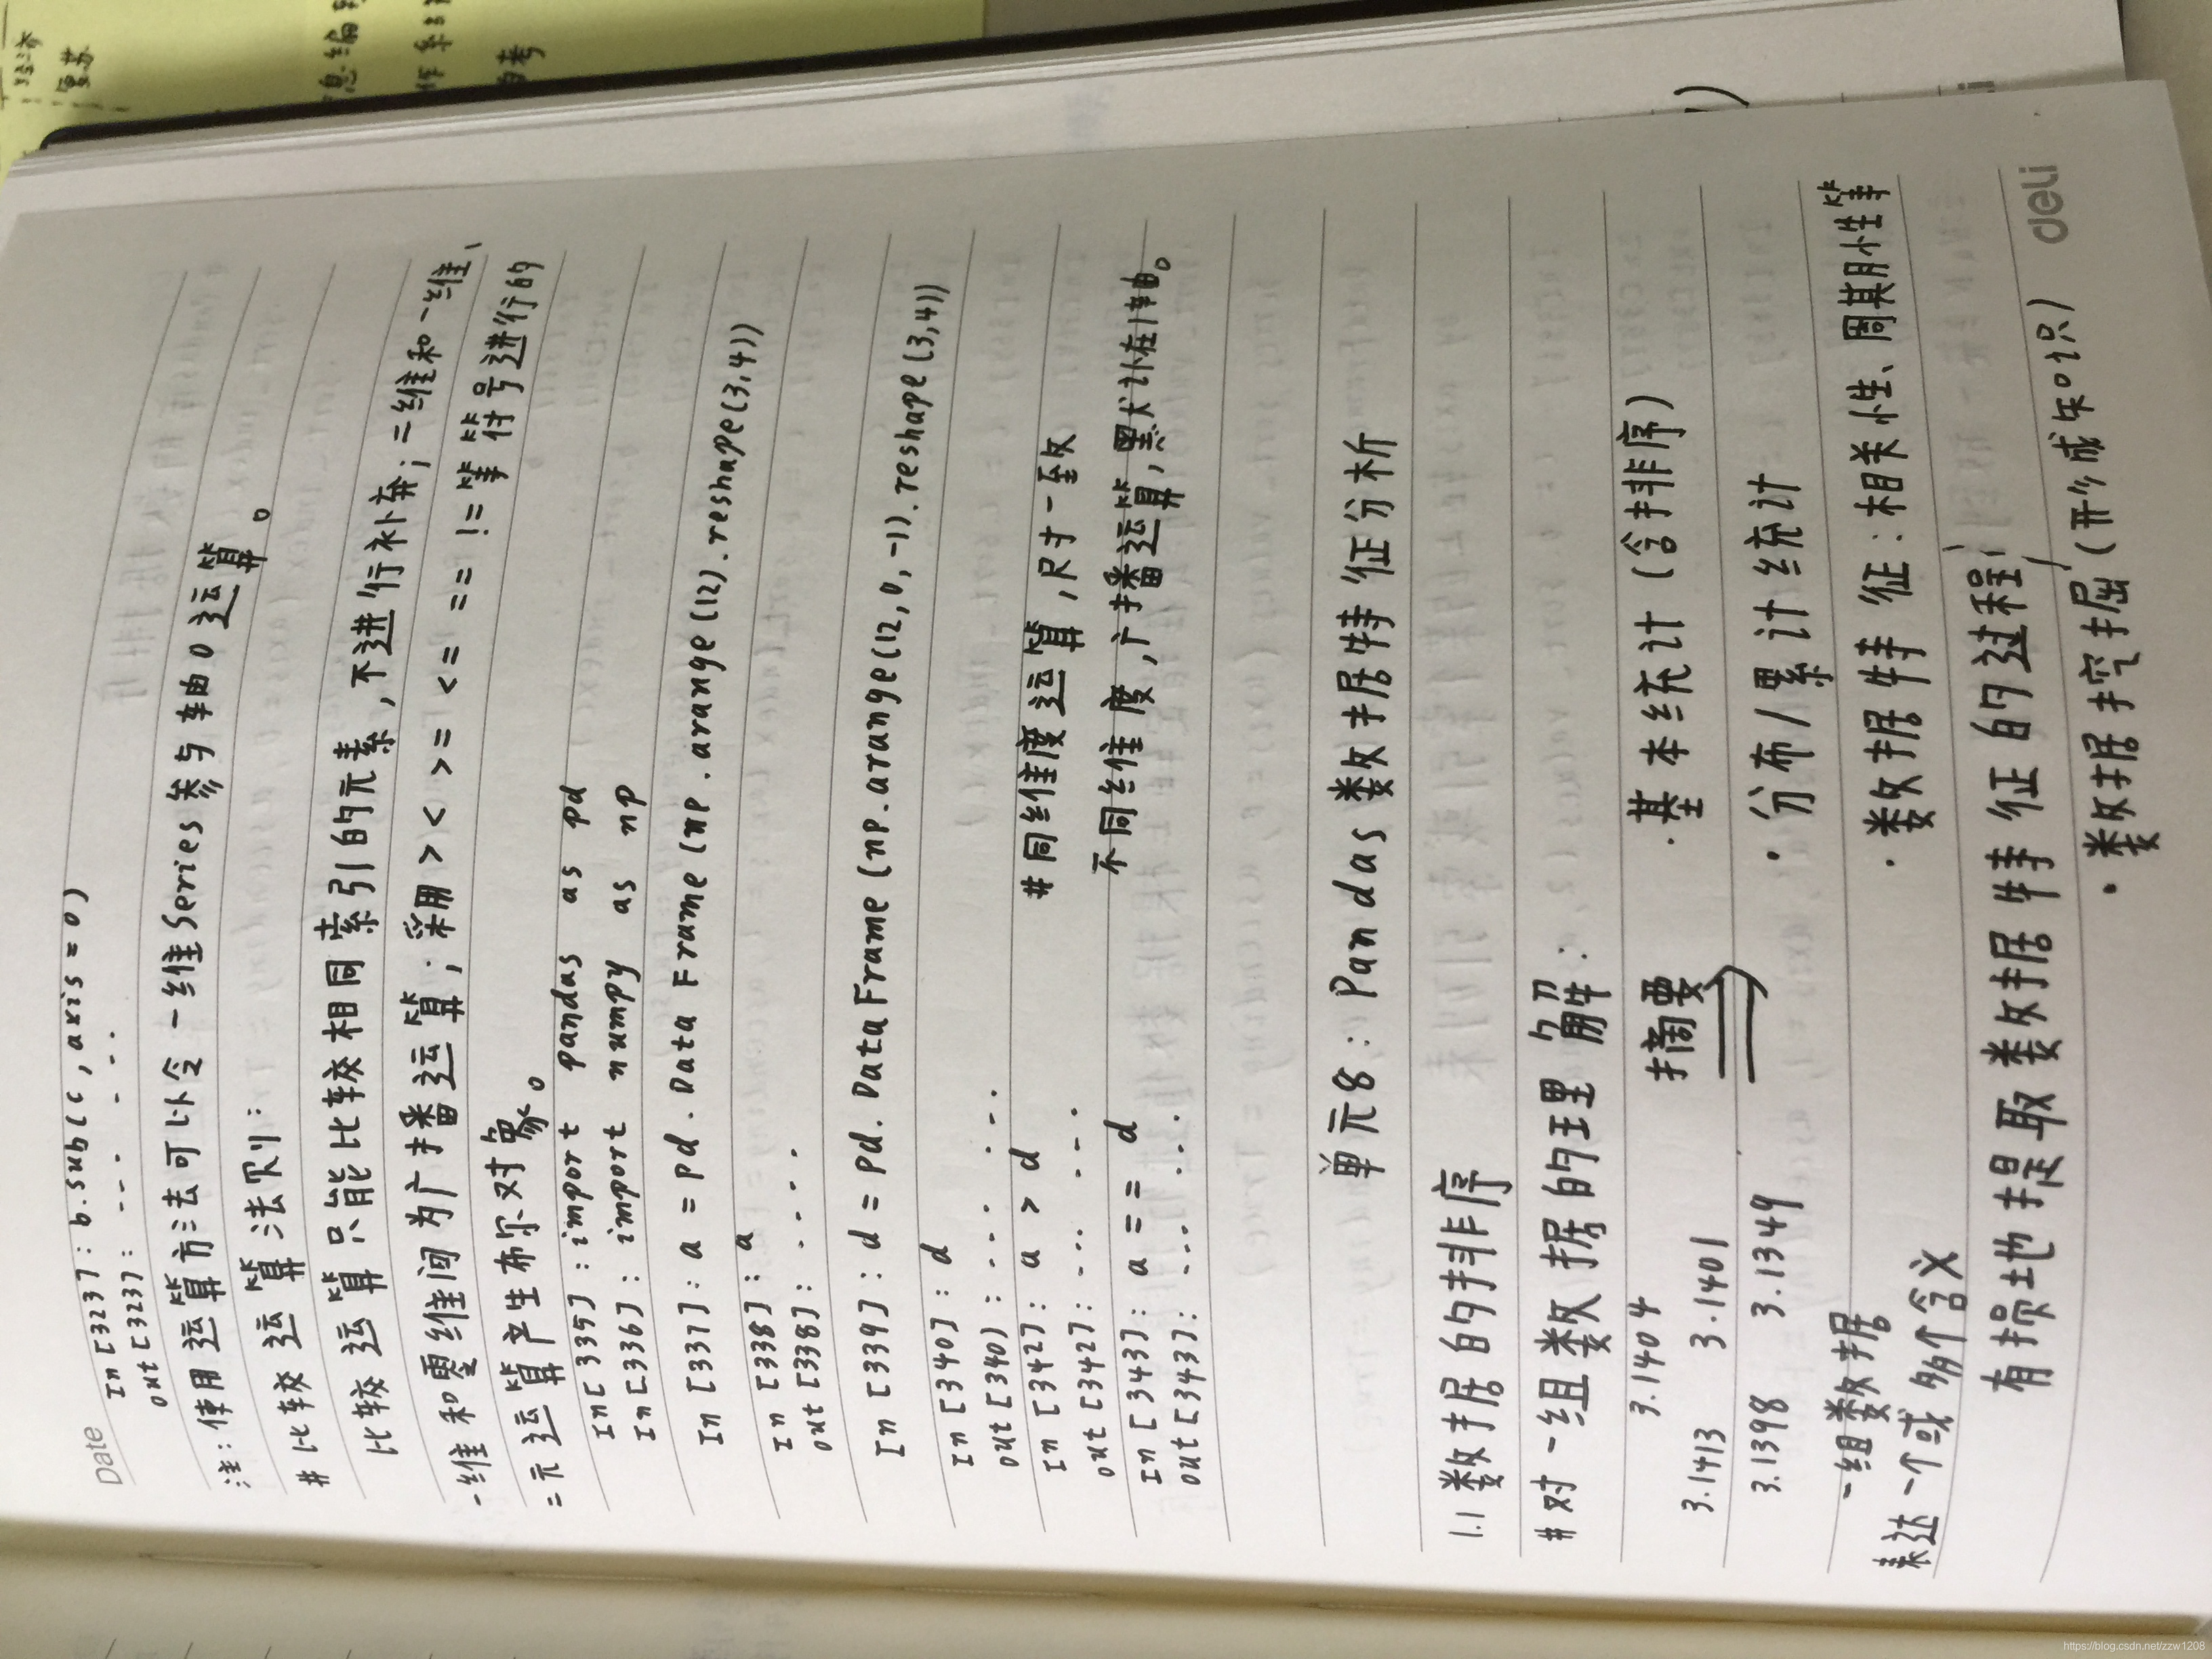 Date
In[323]: b.sub(c, axis=0)
out[323]: ... ...
注:使用运算方法可以令一维Series参与轴0运算。
# 比较运算法则:
比较运算只能比较相同索引的元素,不进行补弃;二维和一维、
一维和零维间为广播运算;采用> < >= <= == !=等符号进行的
二元运算产生布尔对象。
In[335]: import pandas as pd
In[336]: import numpy as np
In[337]: a = pd.DataFrame(np.arange(12).reshape(3,4))
In[338]: a
out[338]: ....
In[339]: d = pd.DataFrame(np.arange(12,0,-1).reshape(3,4))
In[340]: d
out[340]: ... ...
In[342]: a > d #同纬度运算,尺寸一致
out[342]: ... ...
In[343]: a == d 不同纬度,广播运算,默认在1轴。
out[343]: ... ...
单元8:Pandas数据特征分析
1.1 数据的排序
#对一组数据的理解:
3.1404 摘要 ·基本统计(含排序)
3.1413 3.1401
3.1398 3.1349 ·分布/累计统计
一组数据 ·数据特征:相关性、周期性等
表达一个或多个含义
有损地提取数据特征的过程
·数据挖掘(形成知识)
deli
https://blog.csdn.net/zzw1208